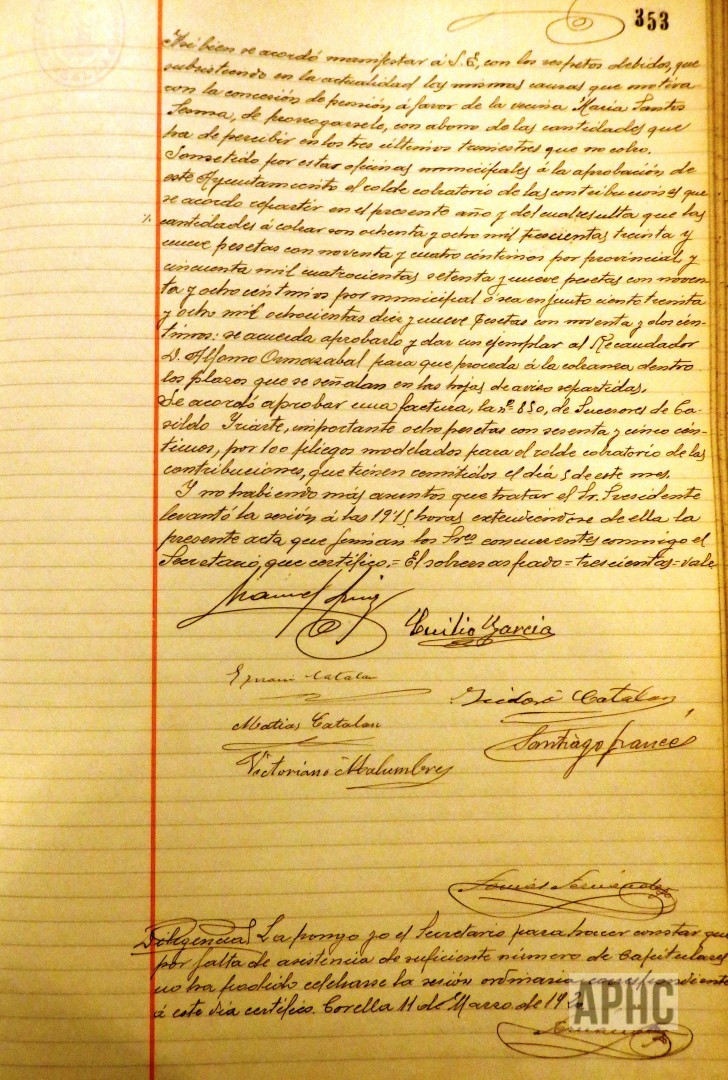 353
Asi bien se acordó manifestar á S.E, con los respetos debidos, que
subsistiendo en la actualidad las mismas causas que motiva
ron la concesión de pensión á favor de la vecina Maria Santos
Sesma, de prorrogarselo, con abono de las cantidades que
ha de percibir en los tres últimos trimestres que no cobro.
Sometido por estas oficinas municipales á la aprobación de
este Ayuntamiento el rolde cobratorio de las contribuciones que
se acordo repartir en el presente año y del cual resulta que las
cantidades á cobrar son ochenta y ocho mil trescientas treinta y
nueve pesetas con noventa y cuatro céntimos por provincial y
cincuenta mil cuatrocientas setenta y nueve pesetas con noven
ta y ocho céntimos por municipal ó sea en junto ciento treinta
y ocho mil ochocientas diez y nueve pesetas con noventa y dos cén-
timos: se acuerda aprobarlo y dar un ejemplar al Recaudador
D. Alfonso Ormazabal para que proceda á la cobranza dentro
los plazos que se señalan en las hojas de aviso repartidas.
Se acordó aprobar una factura, la nº 850, de Sucesores de Ca-
sildo Yriarte, importante ocho pesetas con sesenta y cinco cén-
timos, por 100 pliegos modelados para el rolde cobratorio de las
contribuciones, que tienen remitidos el día 5 de este mes.
Y no habiendo más asuntos que tratar el Sr. Presidente
levantó la sesión á las 19'15 horas extendiéndose de ella la
presente acta que firman los Sres concurrentes conmigo el
Secretario, que certifico.= El sobrerraspado = trescientas = vale
Manuel
Emilio Garcia
Catalan
Isidoro Catalan
Matias Catalan
Santiago Francés
Victoriano Malumbres
Diligencia La pongo yo el Secretario para hacer constar que
por falta de asistencia de suficiente número de Capitulares
no ha podido celebrarse la sesión ordinaria correspondiente
á este día certifico. Corella 11 de Marzo de 192
APHC